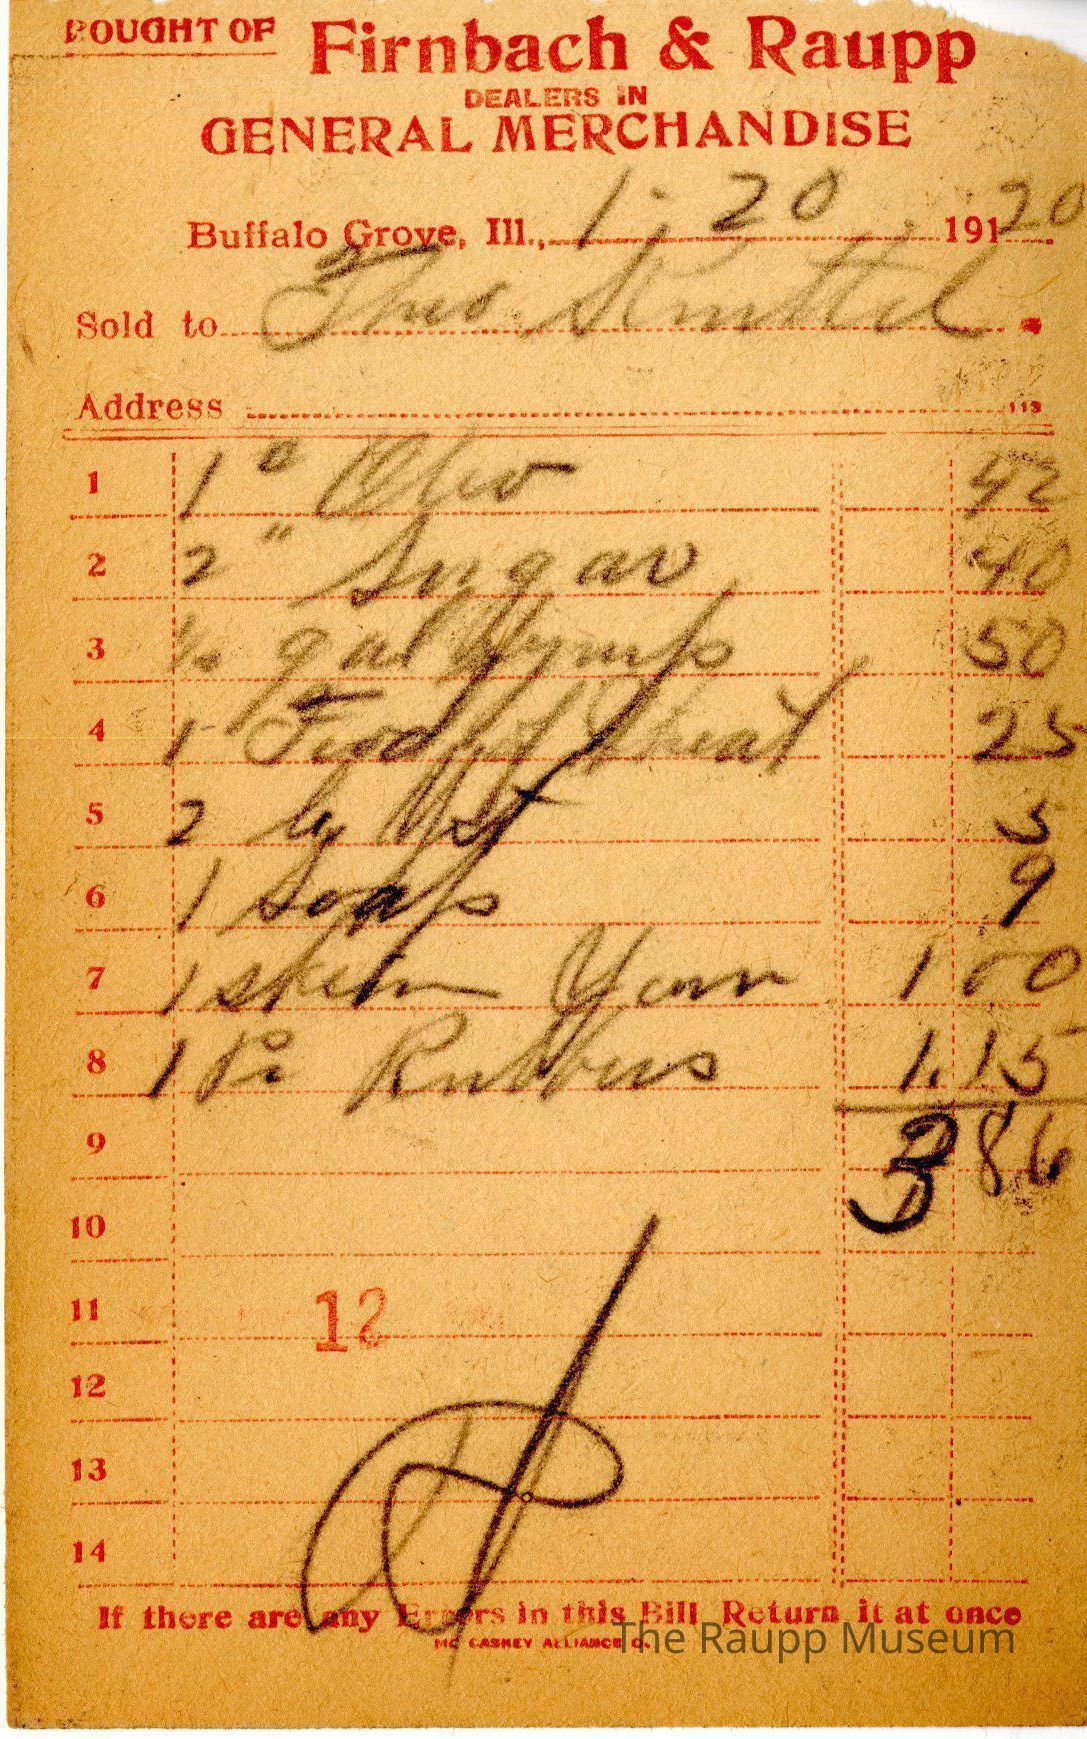 BOUGHT OF Firnbach & Raupp
DEALERS IN
GENERAL MERCHANDISE
Buffalo Grove, Ill., 1-20 1920
Sold to Theo.
Address
113
1 1 " Oleo 42
2 2 " Sugar 40
3 ½ gal Symp 50
4 1 Food of Wheat 25
5 2 Yst 5
6 1 Soap 9
7 1 skein Yarn 1 00
8 1 Pr Rubbers 1.15
9 3 86
10
11 12
12
13
14
If there are any Errors in this Bill Return it at once
MC CASKEY ALLIANCE O.
The Raupp Museum